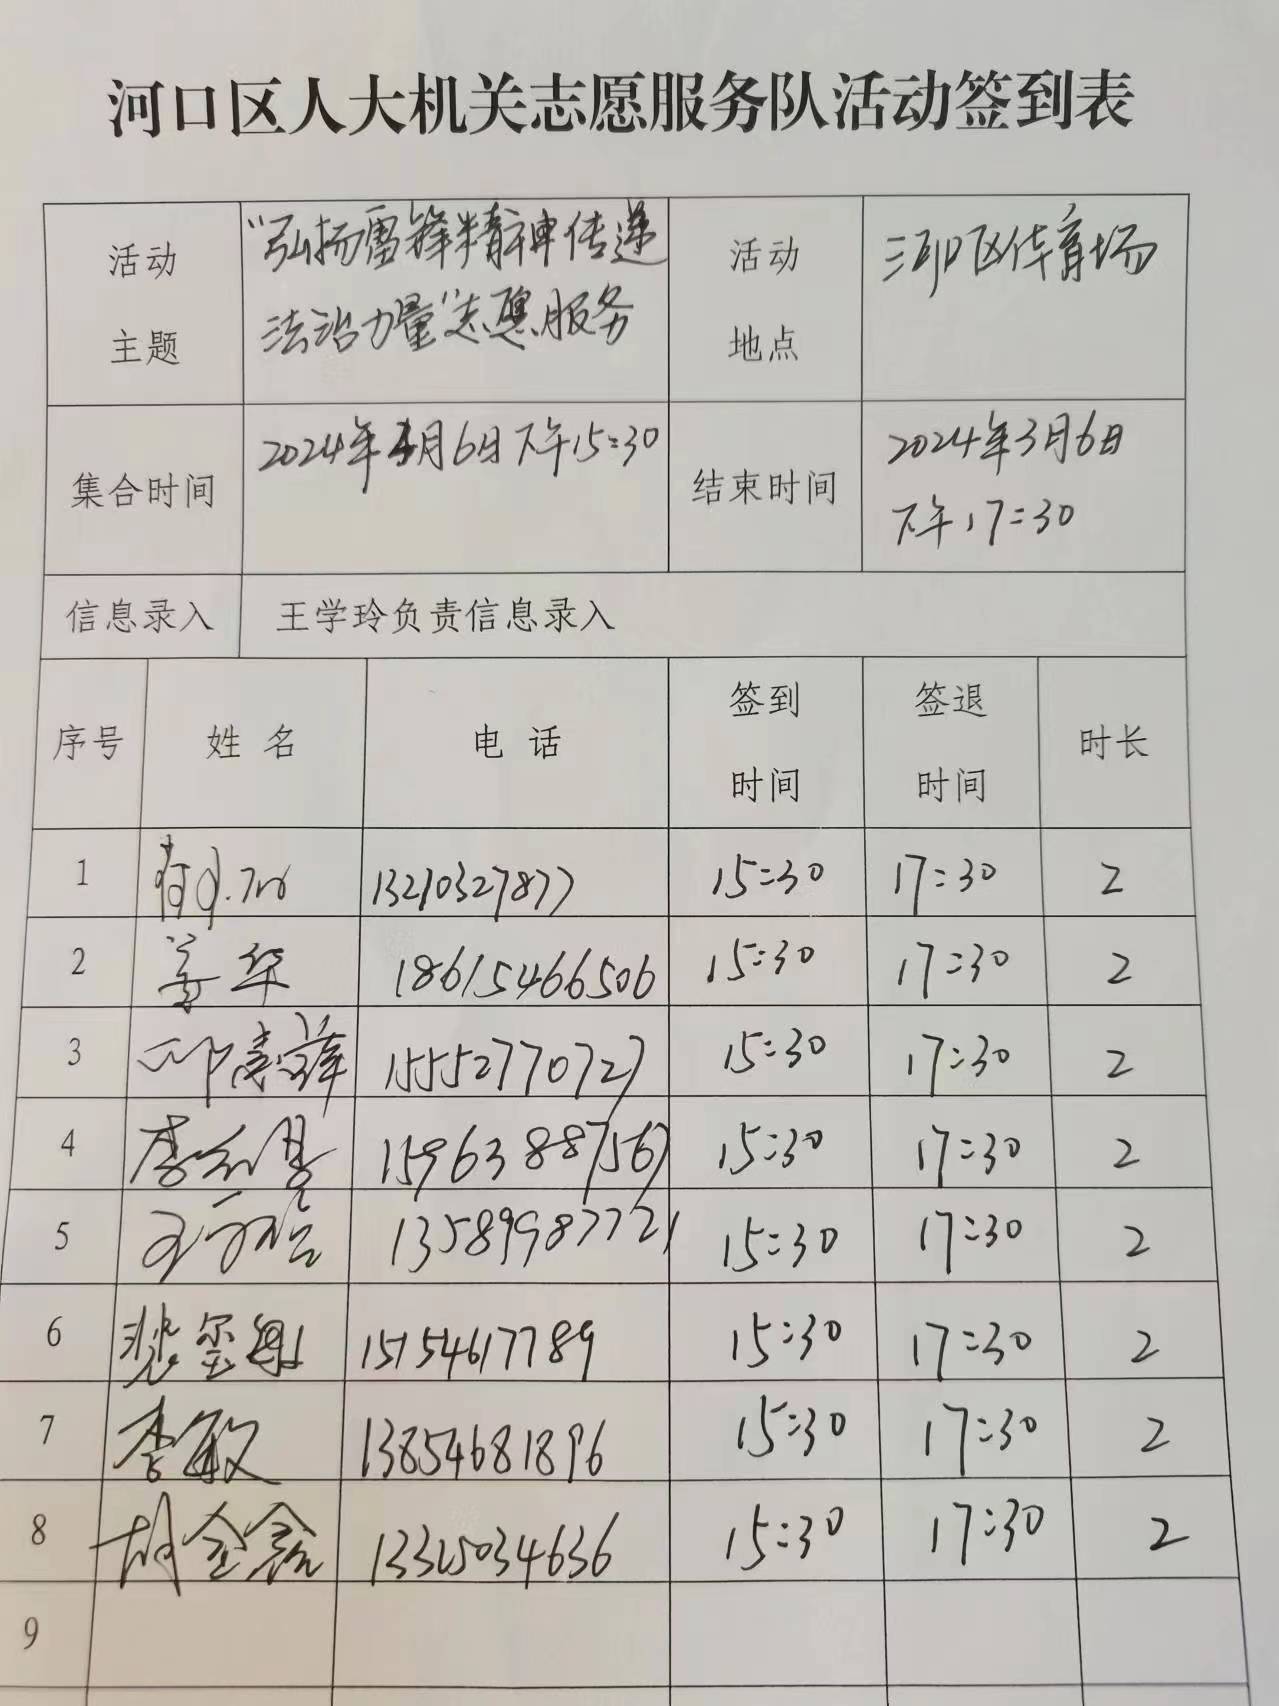 河口区人大机关志愿服务队活动签到表
活动主题
“弘扬雷锋精神传递
法治力量”志愿服务
活动地点
河口区体育场
集合时间
2024年3月6日下午15:30
结束时间
2024年3月6日
下午17:30
信息录入 王学玲负责信息录入
序号 姓名 电话 签到时间 签退时间 时长
1 13210327877 15:30 17:30 2
2 华 18615466506 15:30 17:30 2
3 15552770727 15:30 17:30 2
4 李 15963887567 15:30 17:30 2
5 王 13589987721 15:30 17:30 2
6 裴 15154617789 15:30 17:30 2
7 李敏 13854681896 15:30 17:30 2
8 胡金鑫 13325034636 15:30 17:30 2
9